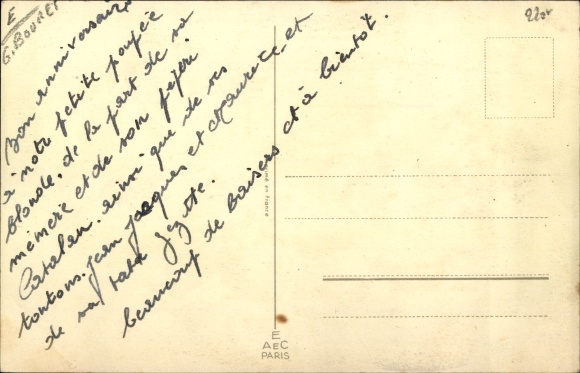 E
G. BOURET
22or
Bon anniversaire
a notre petite poupée
blonde. de la part de sa
mémère et de son pépère
Catalan. ainsi que de ses
tontons. jean jacques et Maurice. et
de sa tata
beaucoup de baisers et à bientôt.
en France
E
AEC
PARIS